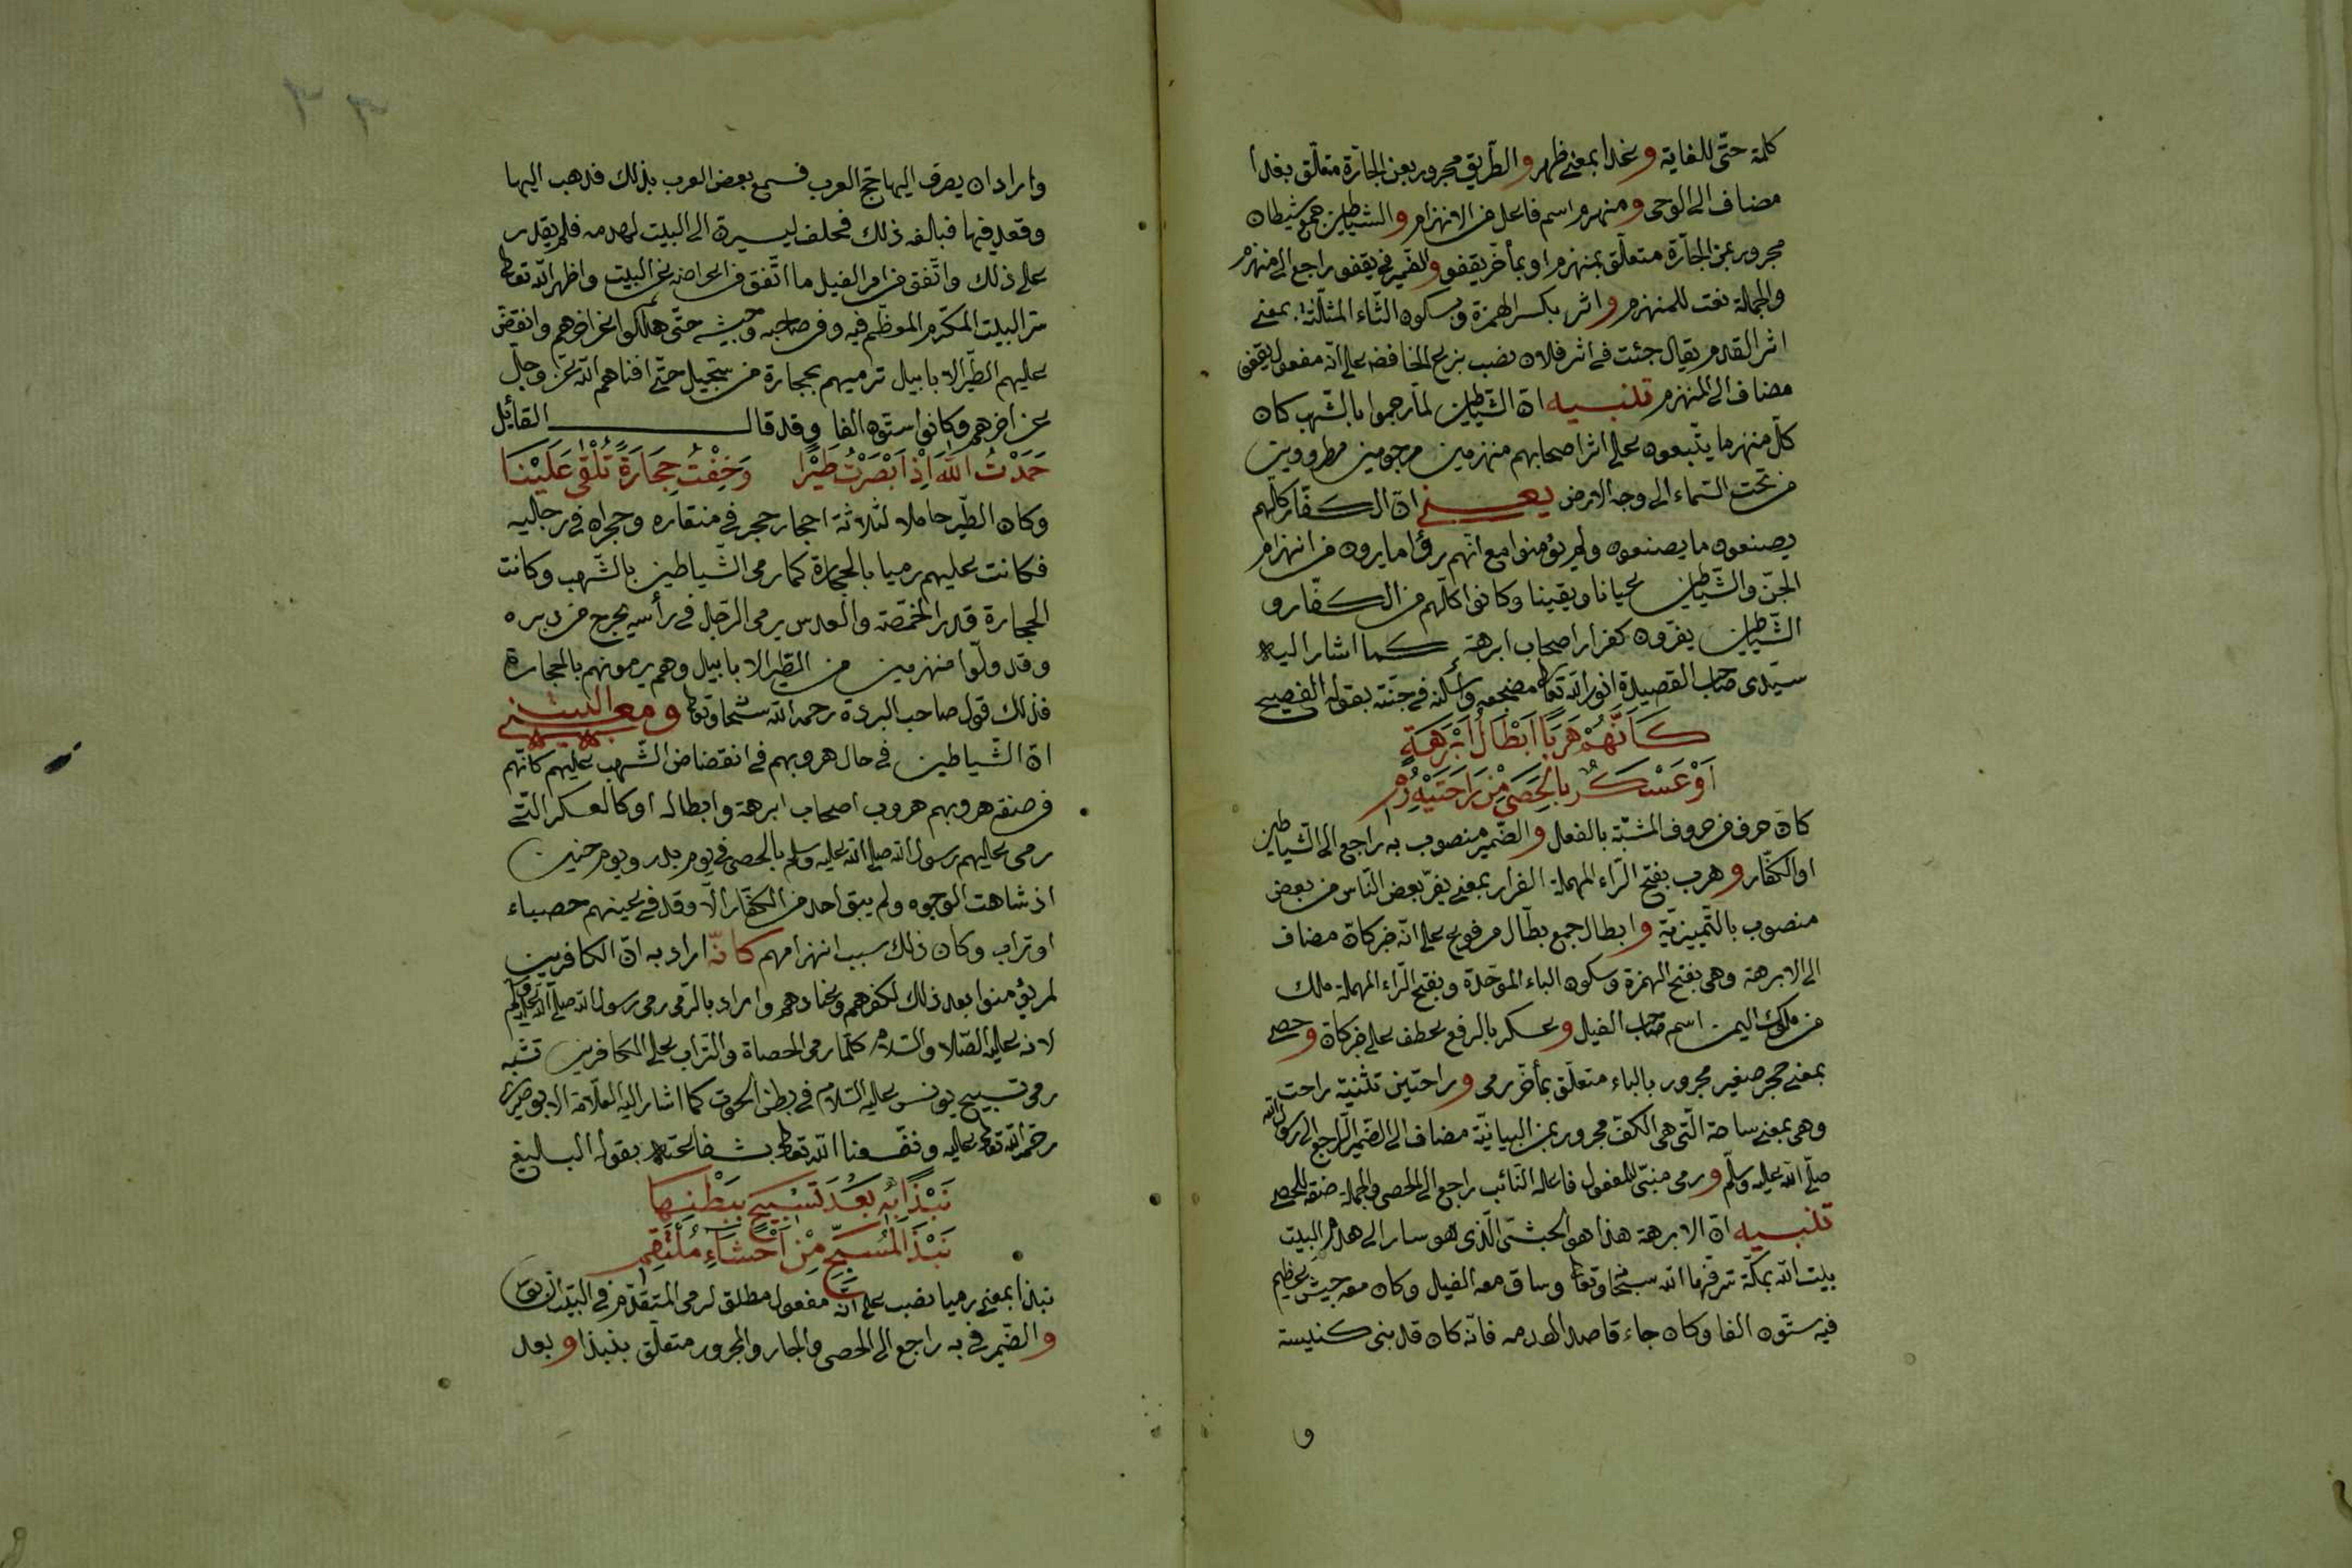 كلمة حتى للغاية وغدا بمعنى ظهر والطّريق مجرور بعن الجارّة متعلّق بغدا
مضاف الى الوحى ومنهزم اسم فاعل من الانهزام والشياطين جمع شيطان
مجرور بمن الجارّة متعلّق بمنهزم او بمأخّر يقفو والضّمير فى يقفو راجع الى منهزم
والجملة نعت للمنهزم واثر بكسر الهمزة وبسكون الثّاء المثلّثة بمعنى
اثر القدم يقال جئت فى اثر فلان نصب بنزع الخافض على انّه مفعول يقفى
مضاف الى المنهزم تنبيه انّ الشّياطين لمّا رجموا بالشّهب كان
كلّ منهزما يتّبعون على اثر اصحابهم منهزمين مرجومين مطرودين
من تحت السّماء الى وجه الارض يعنى انّ الكفّار كلّهم
يصنعون ما يصنعون ولم يؤمنوا مع انّهم رؤا ما يرون من انهزام
الجنّ والشّياطين عيانا ويقينا وكانوا كلّهم من الكفّار و
الشّياطين يفرّون كفرار اصحاب ابرهة كما اشار اليه
سيّدى صاحب القصيدة انور الله تعالى مضجعه واسكنه فى جنّته بقوله الفصيح
كَاَنَّهُمْ هَرَبًا اَبْطَالُ اَبْرَهَةٍ
اَوْ عَسْكَرٌ بِالْحَصٰى مِنْ رَاحَتَيْهِ رُمِ
كانّ حرف من حروف المشبّهة بالفعل والضّمير منصوب به راجع الى الشّياطين
او الكفّار وهرب بفتح الرّاء المهملة الفرار بمعنى يفرّ بعض النّاس من بعض
منصوب بالتّمييزيّة وابطال جمع بطّال مرفوع على انّه خبر كانّ مضاف
الى الابرهة وهى بفتح الهمزة وسكون الباء الموحّدة وبفتح الرّاء المهملة ملك
من ملوك اليمن اسم صاحب الفيل وعسكر بالرفع عطف على خبر كانّ وحصى
بمعنى حجر صغير مجرور بالباء متعلّق بمأخّر رمى وراحتين تثنية راحت
وهى بمعنى ساحة الّتى هى الكفّ مجرور بمن البيانيّة مضاف الى الضّمير الراجع الى رسول الله
صلّى الله عليه وسلّم ورمى مبنىّ للمفعول فاعله النّائب راجع الى الحصى والجملة صفة للحصى
تنبيه انّ الابرهة هذا هو الحبشىّ الّذى هو سار الى هدم البيت
بيت الله بمكّة شرّفها الله سبحانه وتعالى وساق معه الفيل وكان معه جيش عظيم
فيه ستّون الفا وكان جاء قاصدا لهدمه فانّه كان قد بنى كنيسة
و
واراد ان يصرف اليها حجّ العرب فسمع بعض العرب بذلك فذهب اليها
وقعد فيها فبالغه ذلك فحلف ليسيرة الى البيت لهدمه فلم يقدر
على ذلك واتّفق من امر الفيل ما اتّفق من اعراضه عن البيت واظهر الله تعالى
سرّ البيت المكرّم المعظّم فيه وفى صاحبه وجيشه حتّى هلكوا عن اخرهم وانقضّ
عليهم الطّير الابابيل ترميهم بحجارة من سجّيل حتّى افناهم الله عزّ وجلّ
عن اخرهم وكانوا ستّون الفا وقد قال القائل
حَمَدْتُ اللهَ اِذْ اَبْصَرْتُ طَيْرًا وَخِفْتُ حِجَارَةً تُلْقٰى عَلَيْنَا
وكان الطّير حاملا لثلاثة احجار حجر فى منقاره وحجران فى رجليه
فكانت عليهم رميا بالحجارة كما رمى الشّياطين بالشّهب وكانت
الحجارة قدر الحمّصة والعدس يرمى الرّجل فى رأسه يخرج من دبره
وقد ولّوا منهزمين من الطير الابابيل وهم يرمونهم بالحجارة
فذلك قول صاحب البردة رحمه الله سبحانه وتعالى ومعنى البيت
انّ الشّياطين فى حال هروبهم فى انقضاض الشّهب عليهم كانّهم
فى صفة هروبهم هروب اصحاب ابرهة وابطاله او كالعسكر الّتى
رمى عليهم رسول الله صلى الله عليه وسلم بالحصى فى يوم بدر ويوم حنين
اذ شاهت الوجوه ولم يبق احد من الكفّار الّا وقد فى عينهم حصباء
او تراب وكان ذلك سبب انهزامهم كانّه اراد به انّ الكافرين
لم يؤمنوا بعد ذلك لكفرهم وعنادهم واراد بالرّمى رمى رسول الله صلّى الله عليه وسلّم
لانه عليه الصّلاة والسّلام كلّما رمى الحصاة والتّراب على الكافرين تشبه
رمى تسبيح يونس عليه السّلام فى بطن الحوت كما اشار اليه العلّامة الابوصيرى
رحمة الله تعالى عليه ونفّعنا الله تعالى بشفاعته بقوله البليغ
نَبْذًا بِهِ بَعْدَ تَسْبِيحٍ بِبَطْنِهِمَا
نَبْذَ الْمُسَبِّحِ مِنْ اَحْشَاءِ مُلْتَقِمِ
نبذا بمعنى رميا نصب على انّه مفعول مطلق لرمى المتقدّم فى البيت
والضّمير فى به راجع الى الحصى والجار والمجرور متعلّق بنبذا وبعد